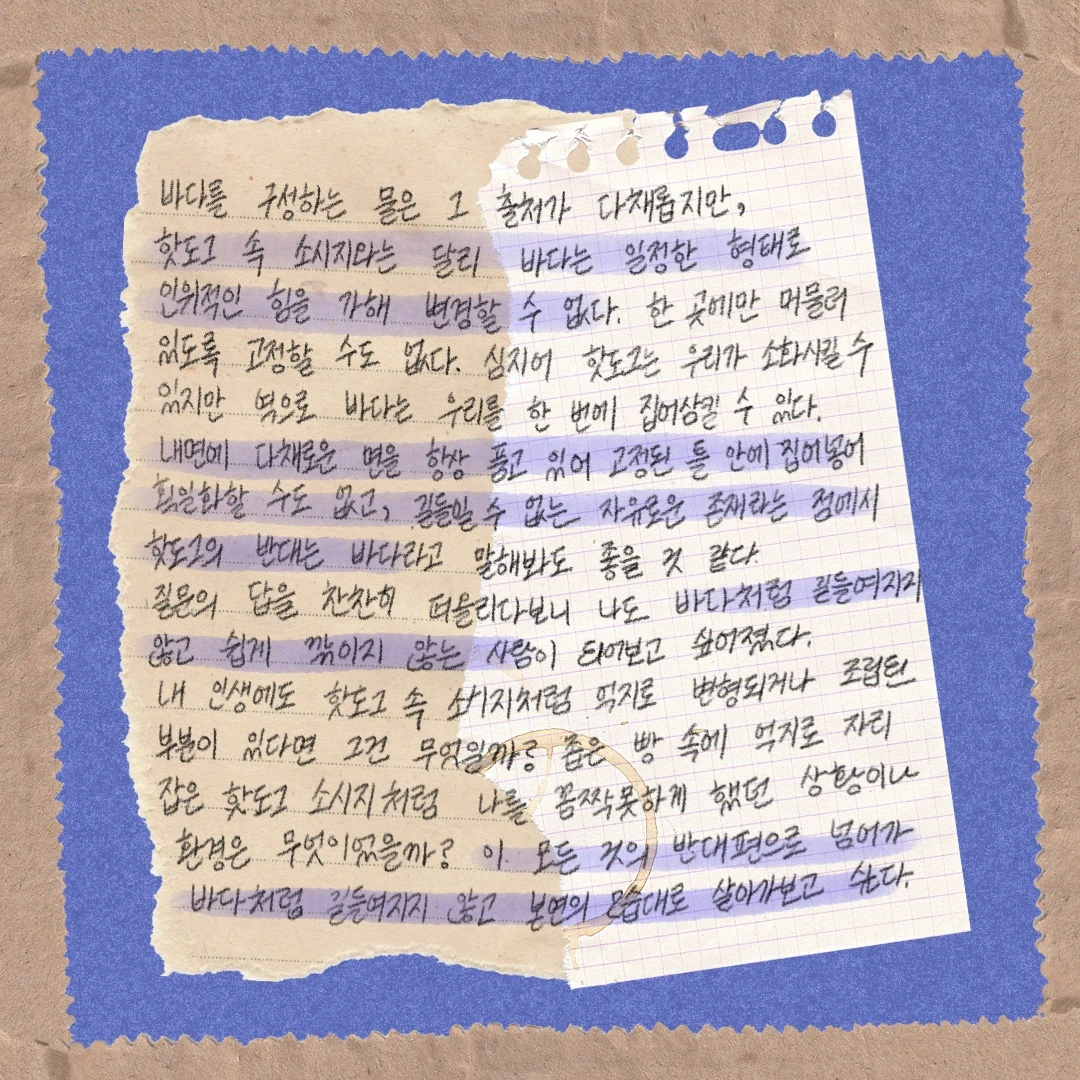 바다를 구성하는 물은 그 출처가 다채롭지만,
핫도그 속 소시지와는 달리 바다는 일정한 형태로
인위적인 힘을 가해 변경할 수 없다. 한 곳에만 머물러
있도록 고정할 수도 없다. 심지어 핫도그는 우리가 소화시킬 수
있지만 역으로 바다는 우리를 한 번에 집어삼킬 수 있다.
내면에 다채로운 면을 항상 품고 있어 고정된 틀 안에 집어넣어
획일화할 수도 없고, 길들일 수 없는 자유로운 존재라는 점에서
핫도그의 반대는 바다라고 말해봐도 좋을 것 같다.
질문의 답을 찬찬히 떠올리다보니 나도 바다처럼 길들여지지
않고 쉽게 깎이지 않는 사람이 되어보고 싶어졌다.
내 인생에도 핫도그 속 소시지처럼 억지로 변형되거나 조립된
부분이 있다면 그건 무엇일까? 좁은 빵 속에 억지로 자리
잡은 핫도그 소시지처럼 나를 꼼짝못하게 했던 상황이나
환경은 무엇이었을까? 이 모든 것의 반대편으로 넘어가
바다처럼 길들여지지 않고 본연의 모습대로 살아가보고 싶다.